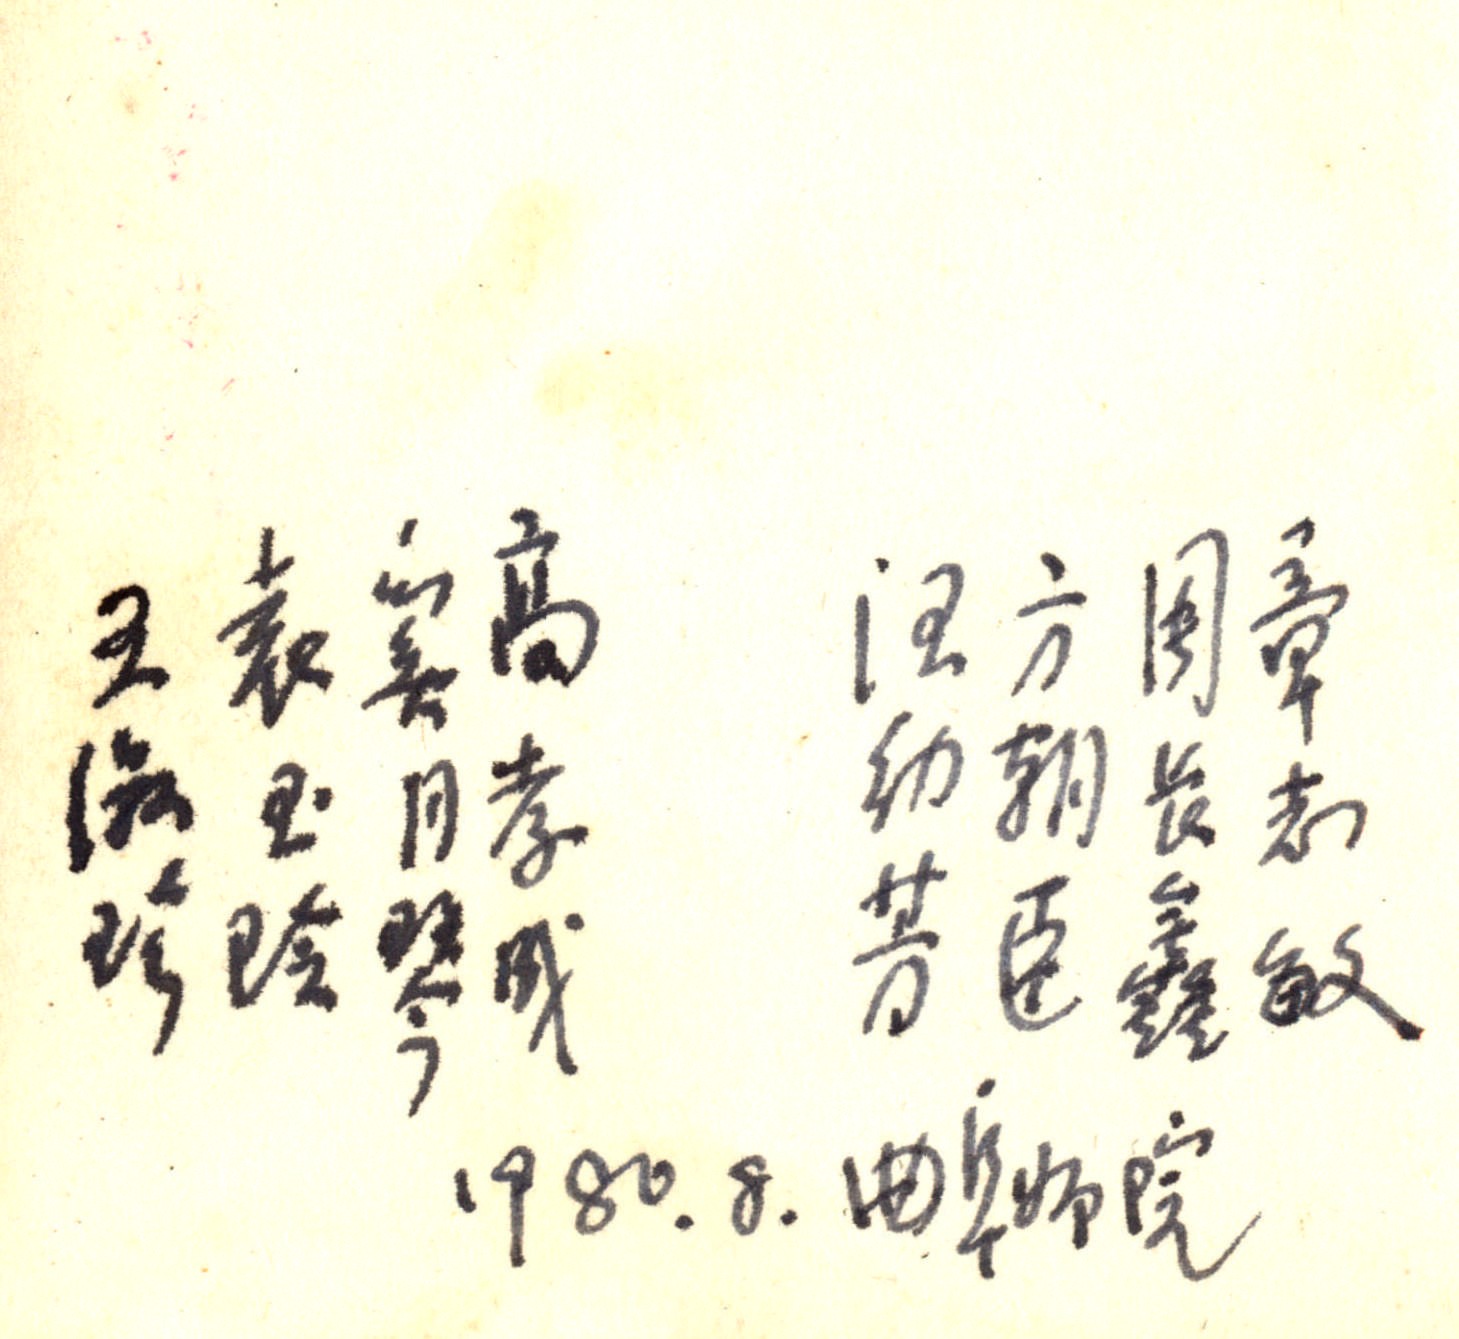 章志敏
周长鑫
方朝臣
汪幼芳
高孝成
窦月琴
袁玉玲
王淑珍
1980.8.曲阜师院